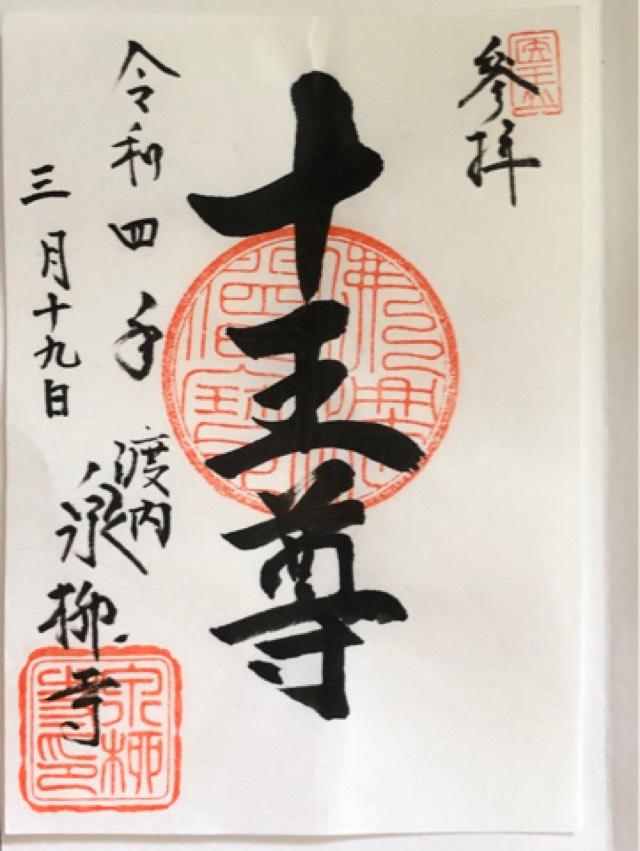 參拝
十王尊
令和四年
三月十九日
渡内
泉柳寺
泉柳
寺印